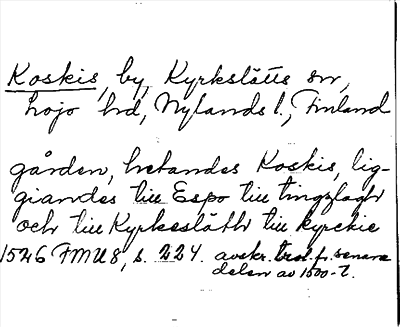 Koskis, by, Kyrkslätts sn,
Lojo hd, Nylands l., Finland
gården, hetandes Koskis, lig-
giandes till Espo till tingzlagh
och till Kyrkeslätth till kyrckie
1546 FMU 8, s. 224. avskr. trol. fr. senare
delen av 1500-t.